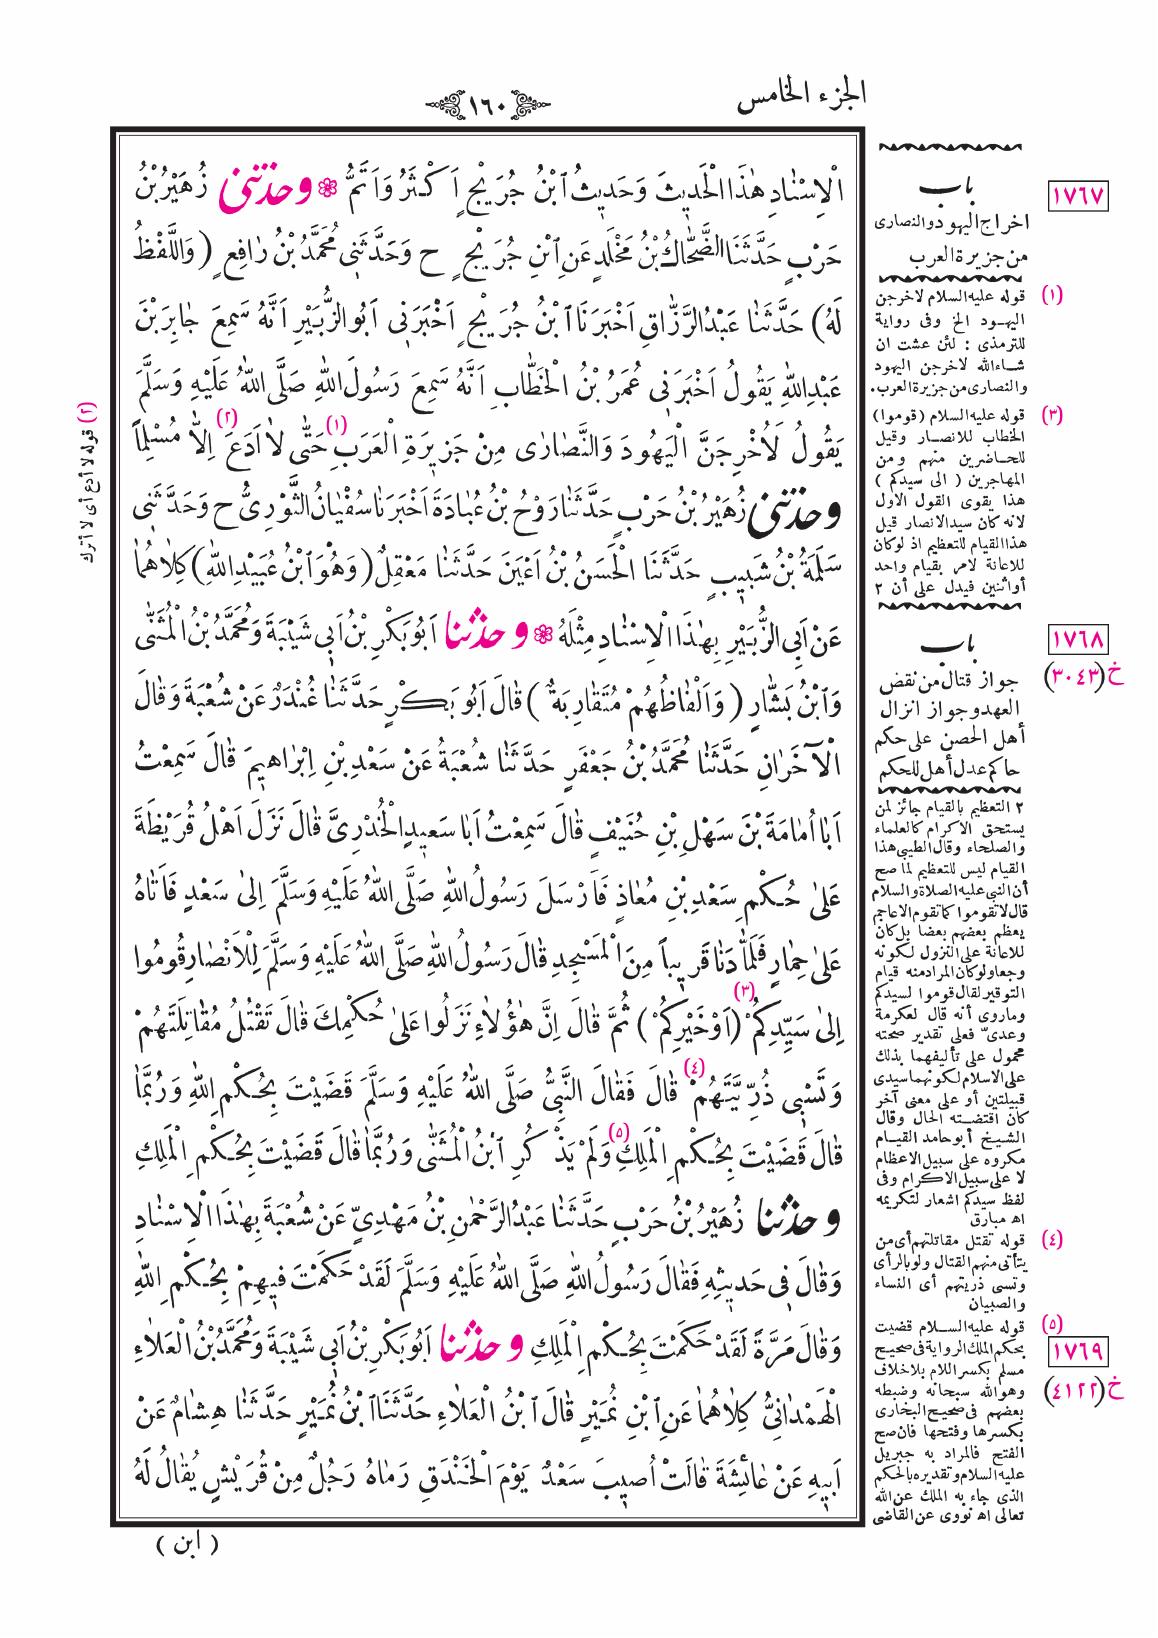 الجزء الخامس
١٦٠
الْاِسْنَادِ هٰذَا الْحَدِيثَ وَحَدِيثُ ابْنُ جُرَيْجٍ اَكْثَرُ وَاَتَمُّ ❁ وحدثنى زُهَيْرُ بْنُ
حَرْبٍ حَدَّثَنَا الضَّحَّاكُ بْنُ مَخْلَدٍ عَنِ ابْنِ جُرَيْجٍ ح وَحَدَّثَنِى مُحَمَّدُ بْنُ رَافِعٍ (وَاللَّفْظُ
لَهُ) حَدَّثَنَا عَبْدُ الرَّزَّاقِ اَخْبَرَنَا ابْنُ جُرَيْجٍ اَخْبَرَنِى اَبُو الزُّبَيْرِ اَنَّهُ سَمِعَ جَابِرَ بْنَ
عَبْدِ اللّٰهِ يَقُولُ اَخْبَرَنِى عُمَرُ بْنُ الْخَطَّابِ اَنَّهُ سَمِعَ رَسُولَ اللّٰهِ صَلَّى اللّٰهُ عَلَيْهِ وَسَلَّمَ
يَقُولُ لَاُخْرِجَنَّ الْيَهُودَ وَالنَّصَارٰى مِنْ جَزِيرَةِ الْعَرَبِ (١) حَتّٰى لَا اَدَعَ (٢) اِلَّا مُسْلِماً
وحدثنى زُهَيْرُ بْنُ حَرْبٍ حَدَّثَنَا رَوْحُ بْنُ عُبَادَةَ اَخْبَرَنَا سُفْيَانُ الثَّوْرِىُّ ح وَحَدَّثَنِى
سَلَمَةُ بْنُ شَبِيبٍ حَدَّثَنَا الْحَسَنُ بْنُ اَعْيَنَ حَدَّثَنَا مَعْقِلٌ (وَهُوَ ابْنُ عُبَيْدِ اللّٰهِ) كِلَاهُمَا
عَنْ اَبِى الزُّبَيْرِ بِهٰذَا الْاِسْنَادِ مِثْلَهُ ❁ وحدثنا اَبُو بَكْرِ بْنُ اَبِى شَيْبَةَ وَمُحَمَّدُ بْنُ الْمُثَنّٰى
وَابْنُ بَشَّارٍ (وَاَلْفَاظُهُمْ مُتَقَارِبَةٌ) قَالَ اَبُو بَكْرٍ حَدَّثَنَا غُنْدَرٌ عَنْ شُعْبَةَ وَقَالَ
الْآخَرَانِ حَدَّثَنَا مُحَمَّدُ بْنُ جَعْفَرٍ حَدَّثَنَا شُعْبَةُ عَنْ سَعْدِ بْنِ اِبْرَاهِيمَ قَالَ سَمِعْتُ
اَبَا اُمَامَةَ بْنَ سَهْلِ بْنِ حُنَيْفٍ قَالَ سَمِعْتُ اَبَا سَعِيدٍ الْخُدْرِىَّ قَالَ نَزَلَ اَهْلُ قُرَيْظَةَ
عَلٰى حُكْمِ سَعْدِ بْنِ مُعَاذٍ فَاَرْسَلَ رَسُولُ اللّٰهِ صَلَّى اللّٰهُ عَلَيْهِ وَسَلَّمَ اِلٰى سَعْدٍ فَاَتَاهُ
عَلٰى حِمَارٍ فَلَمَّا دَنَا قَرِيباً مِنَ الْمَسْجِدِ قَالَ رَسُولُ اللّٰهِ صَلَّى اللّٰهُ عَلَيْهِ وَسَلَّمَ لِلْاَنْصَارِ قُومُوا
اِلٰى سَيِّدِكُمْ (٣) (اَوْ خَيْرِكُمْ) ثُمَّ قَالَ اِنَّ هٰؤُلَاءِ نَزَلُوا عَلٰى حُكْمِكَ قَالَ تَقْتُلُ مُقَاتِلَتَهُمْ
وَتَسْبِى ذُرِّيَّتَهُمْ (٤) قَالَ فَقَالَ النَّبِىُّ صَلَّى اللّٰهُ عَلَيْهِ وَسَلَّمَ قَضَيْتَ بِحُكْمِ اللّٰهِ وَرُبَّمَا
قَالَ قَضَيْتَ بِحُكْمِ الْمَلِكِ (٥) وَلَمْ يَذْكُرِ ابْنُ الْمُثَنّٰى وَرُبَّمَا قَالَ قَضَيْتَ بِحُكْمِ الْمَلِكِ
وحدثنا زُهَيْرُ بْنُ حَرْبٍ حَدَّثَنَا عَبْدُ الرَّحْمٰنِ بْنُ مَهْدِىٍّ عَنْ شُعْبَةَ بِهٰذَا الْاِسْنَادِ
وَقَالَ فِى حَدِيثِهِ فَقَالَ رَسُولُ اللّٰهِ صَلَّى اللّٰهُ عَلَيْهِ وَسَلَّمَ لَقَدْ حَكَمْتَ فِيهِمْ بِحُكْمِ اللّٰهِ
وَقَالَ مَرَّةً لَقَدْ حَكَمْتَ بِحُكْمِ الْمَلِكِ وحدثنا اَبُو بَكْرِ بْنُ اَبِى شَيْبَةَ وَمُحَمَّدُ بْنُ الْعَلَاءِ
الْهَمْدَانِىُّ كِلَاهُمَا عَنِ ابْنِ نُمَيْرٍ قَالَ ابْنُ الْعَلَاءِ حَدَّثَنَا ابْنُ نُمَيْرٍ حَدَّثَنَا هِشَامٌ عَنْ
اَبِيهِ عَنْ عَائِشَةَ قَالَتْ اُصِيبَ سَعْدٌ يَوْمَ الْخَنْدَقِ رَمَاهُ رَجُلٌ مِنْ قُرَيْشٍ يُقَالُ لَهُ
( ابن )
١٧٦٧
باب
اخراج اليهود والنصارى
من جزيرة العرب
(١) قوله عليه السلام لاخرجن
اليهود الخ وفى رواية
للترمذى : لئن عشت ان
شاء الله لاخرجن اليهود
والنصارى من جزيرة العرب.
(٣) قوله عليه السلام (قوموا)
الخطاب للانصار وقيل
للحاضرين منهم ومن
المهاجرين ( الى سيدكم )
هذا يقوى القول الاول
لانه كان سيد الانصار قيل
هذا القيام للتعظيم اذ لو كان
للاعانة لامر بقيام واحد
أو اثنين فيدل على أن ٢
١٧٦٨
خ (٣٠٤٣)
باب
جواز قتال من نقض
العهد وجواز انزال
أهل الحصن على حكم
حاكم عدل أهل للحكم
٢ التعظيم بالقيام جائز لمن
يستحق الاكرام كالعلماء
والصلحاء وقال الطيبى هذا
القيام ليس للتعظيم لما صح
أن النبى عليه الصلاة والسلام
قال لا تقوموا كما تقوم الاعاجم
يعظم بعضهم بعضا بل كان
للاعانة على النزول لكونه
وجعا ولو كان المراد منه قيام
التوقير لقال قوموا لسيدكم
وما روى أنه قال لعكرمة
وعدىّ فعلى تقدير صحته
محمول على تأليفهما بذلك
على الاسلام لكونهما سيدى
قبيلتين أو على معنى آخر
كان اقتضته الحال وقال
الشيخ أبو حامد القيام
مكروه على سبيل الاعظام
لا على سبيل الاكرام وفى
لفظ سيدكم اشعار لتكريمه
اه مبارق
(٤) قوله تقتل مقاتلتهم أى من
يتأتى منهم القتال ولو بالرأى
وتسبى ذريتهم أى النساء
والصبيان
(٥) قوله عليه السلام قضيت
بحكم الملك الرواية فى صحيح
مسلم بكسر اللام بلا خلاف
وهو الله سبحانه وضبطه
بعضهم فى صحيح البخارى
بكسرها وفتحها فان صح
الفتح فالمراد به جبريل
عليه السلام وتقديره بالحكم
الذى جاء به الملك عن الله
تعالى اه نووى عن القاضى
١٧٦٩
خ (٤١٢٢)
(٢) قوله لا أدع أى لا أترك